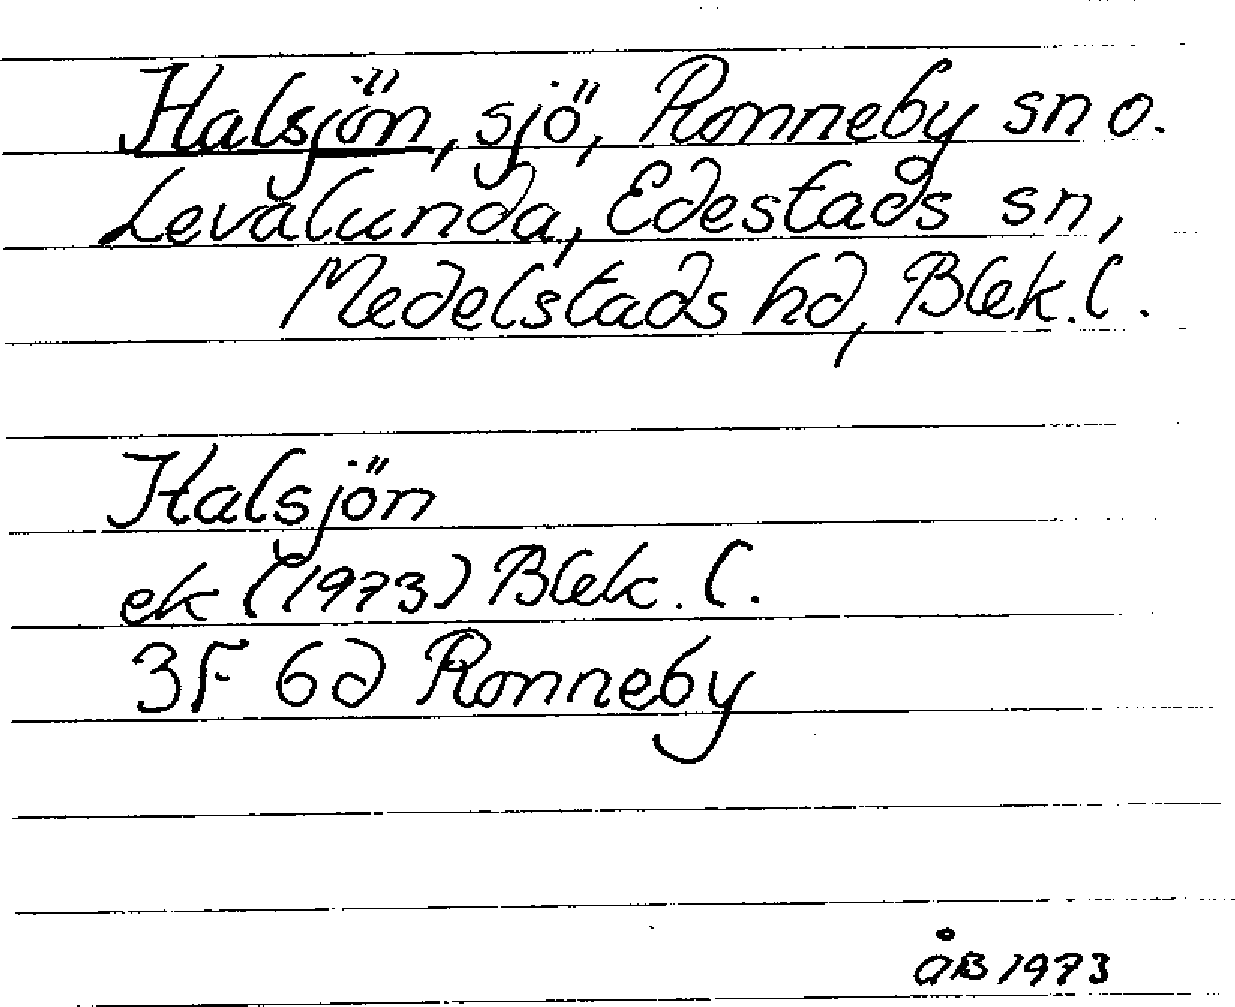 Halsjön, sjö, Ronneby sn o.
Levalunda, Edestads sn,
Medelstads hd, Blek. l.
Halsjön
ek (1973) Blek. l.
3F 6d Ronneby
ÅB 1973